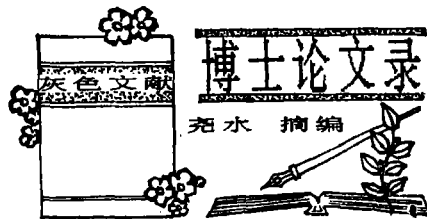 灰色文献
博士论文录
尧水 摘编